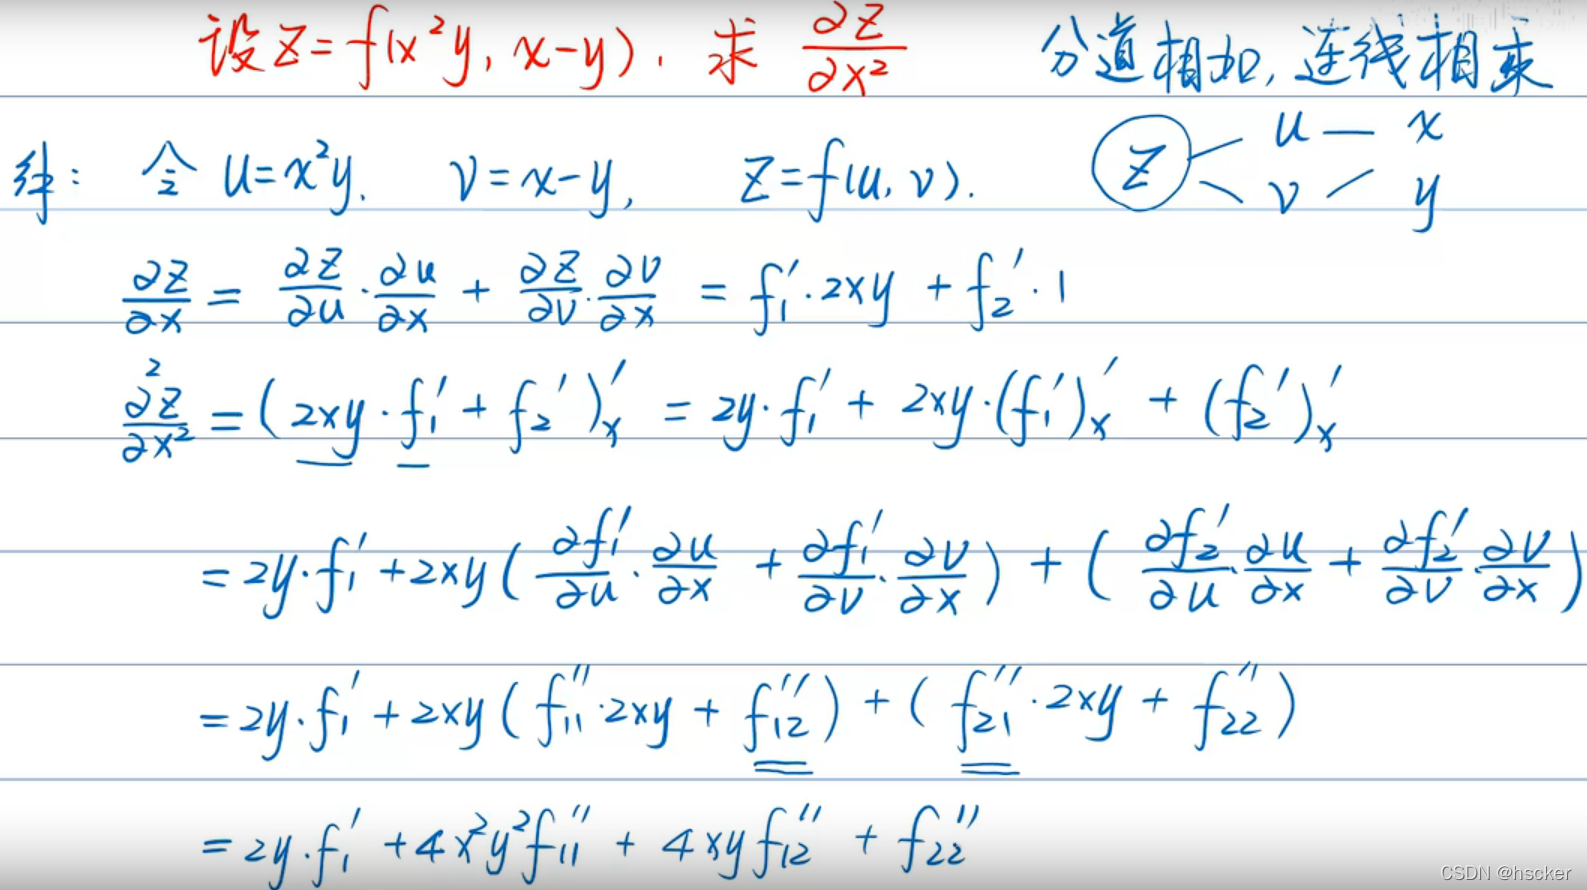 设Z=f(x²y, x-y). 求 ∂Z/∂x² 分道相加, 连线相乘
解: 令 u=x²y. v=x-y, Z=f(u, v). Z u — x v y
∂Z/∂x = ∂Z/∂u · ∂u/∂x + ∂Z/∂v · ∂v/∂x = f₁′·2xy + f₂′·1
∂²Z/∂x² = (2xy·f₁′ + f₂′)′ₓ = 2y·f₁′ + 2xy·(f₁′)′ₓ + (f₂′)′ₓ
= 2y·f₁′ + 2xy(∂f₁′/∂u · ∂u/∂x + ∂f₁′/∂v · ∂v/∂x) + (∂f₂′/∂u · ∂u/∂x + ∂f₂′/∂v · ∂v/∂x)
= 2y·f₁′ + 2xy(f₁₁″·2xy + f₁₂″) + (f₂₁″·2xy + f₂₂″)
= 2y·f₁′ + 4x²y²f₁₁″ + 4xyf₁₂″ + f₂₂″
CSDN @hscker